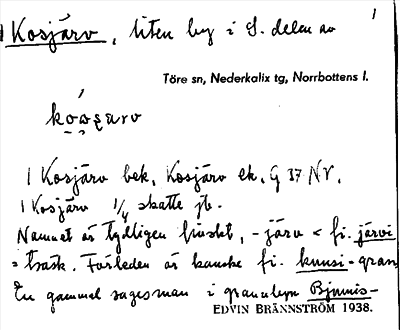 1
1 Kosjärv, liten by i S. delen av
Töre sn, Nederkalix tg, Norrbottens l.
1 Kosjärv bek., Kosjärv ek. G 37 NV.
1 Kosjärv 1/4 skatte jb.
Namnet är tydligen finskt, -järv < fi. järvi
= träsk. Förleden är kanske fi. kuusi = gran
En gammal sagesman i granbyn Bjumis-
EDVIN BRÄNNSTRÖM 1938.